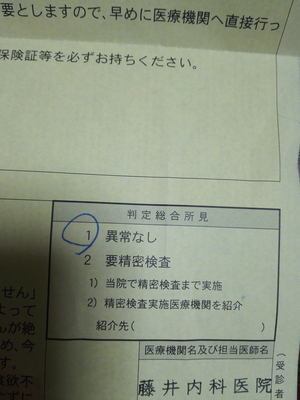 要としますので、早めに医療機関へ直接行っ
保険証等を必ずお持ちください。
判定総合所見
1 異常なし
2 要精密検査
1) 当院で精密検査まで実施
2) 精密検査実施医療機関を紹介
紹介先( )
医療機関名及び担当医師名
藤井内科医院
(受診者
せん」
よって
んが絶
め、今
す。
食欲不